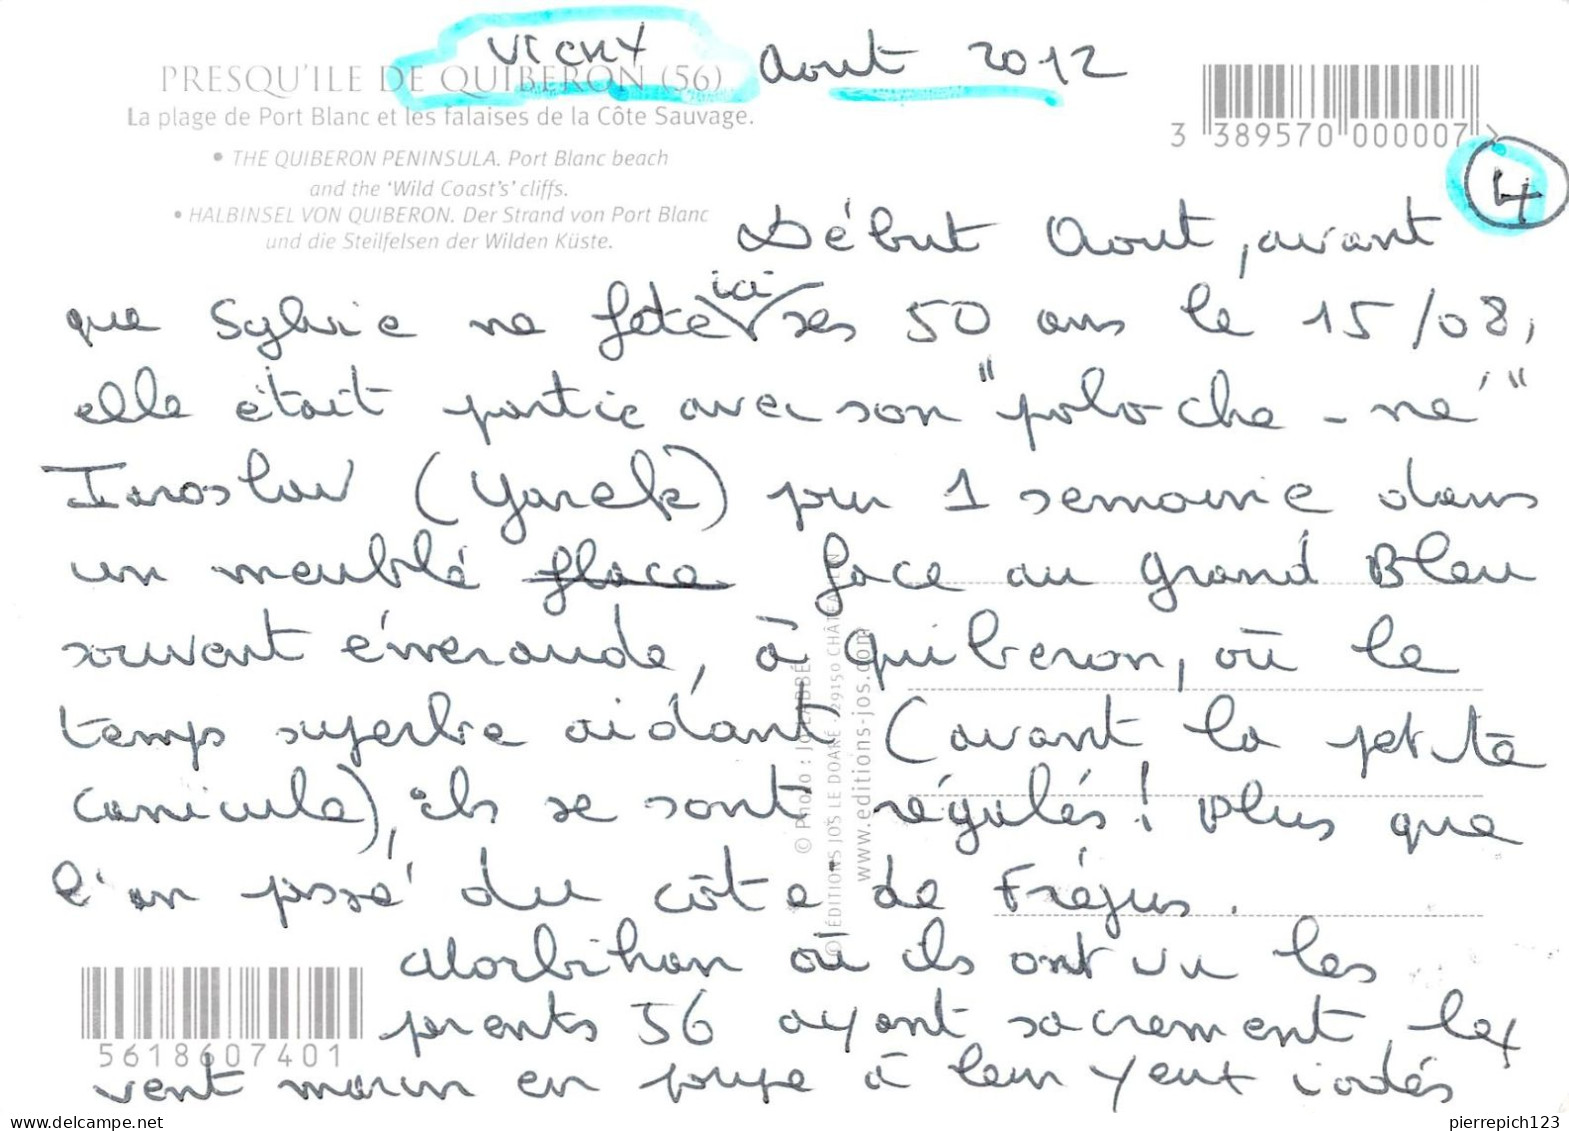 VICHY Aout 2012
PRESQU'ILE DE QUIBERON (56)
La plage de Port Blanc et les falaises de la Côte Sauvage.
• THE QUIBERON PENINSULA. Port Blanc beach
and the 'Wild Coast's' cliffs.
• HALBINSEL VON QUIBERON. Der Strand von Port Blanc
und die Steilfelsen der Wilden Küste.
3 389570 000007 >
4
Début Aout, avant
que Sylvie ne fête ici ses 50 ans le 15/08,
elle était partie avec son "polo-che-né"
Iaroslav (Yarek) pour 1 semaine dans
un meublé face au grand Bleu
souvent émeraude, à Quiberon, où le
temps superbe aidant (avant la petite
canicule), ils se sont régalés! Plus que
l'an passé du côté de Fréjus.
Morbihan où ils ont vu les
parents 56 ayant sacrement le
vent marin en poupe à leur yeux iodés
© Photo :
© ÉDITIONS JOS LE DOARÉ - 29150 CHÂTEAULIN
www.editions-jos.com
5618607401
delcampe.net
pierrepich123